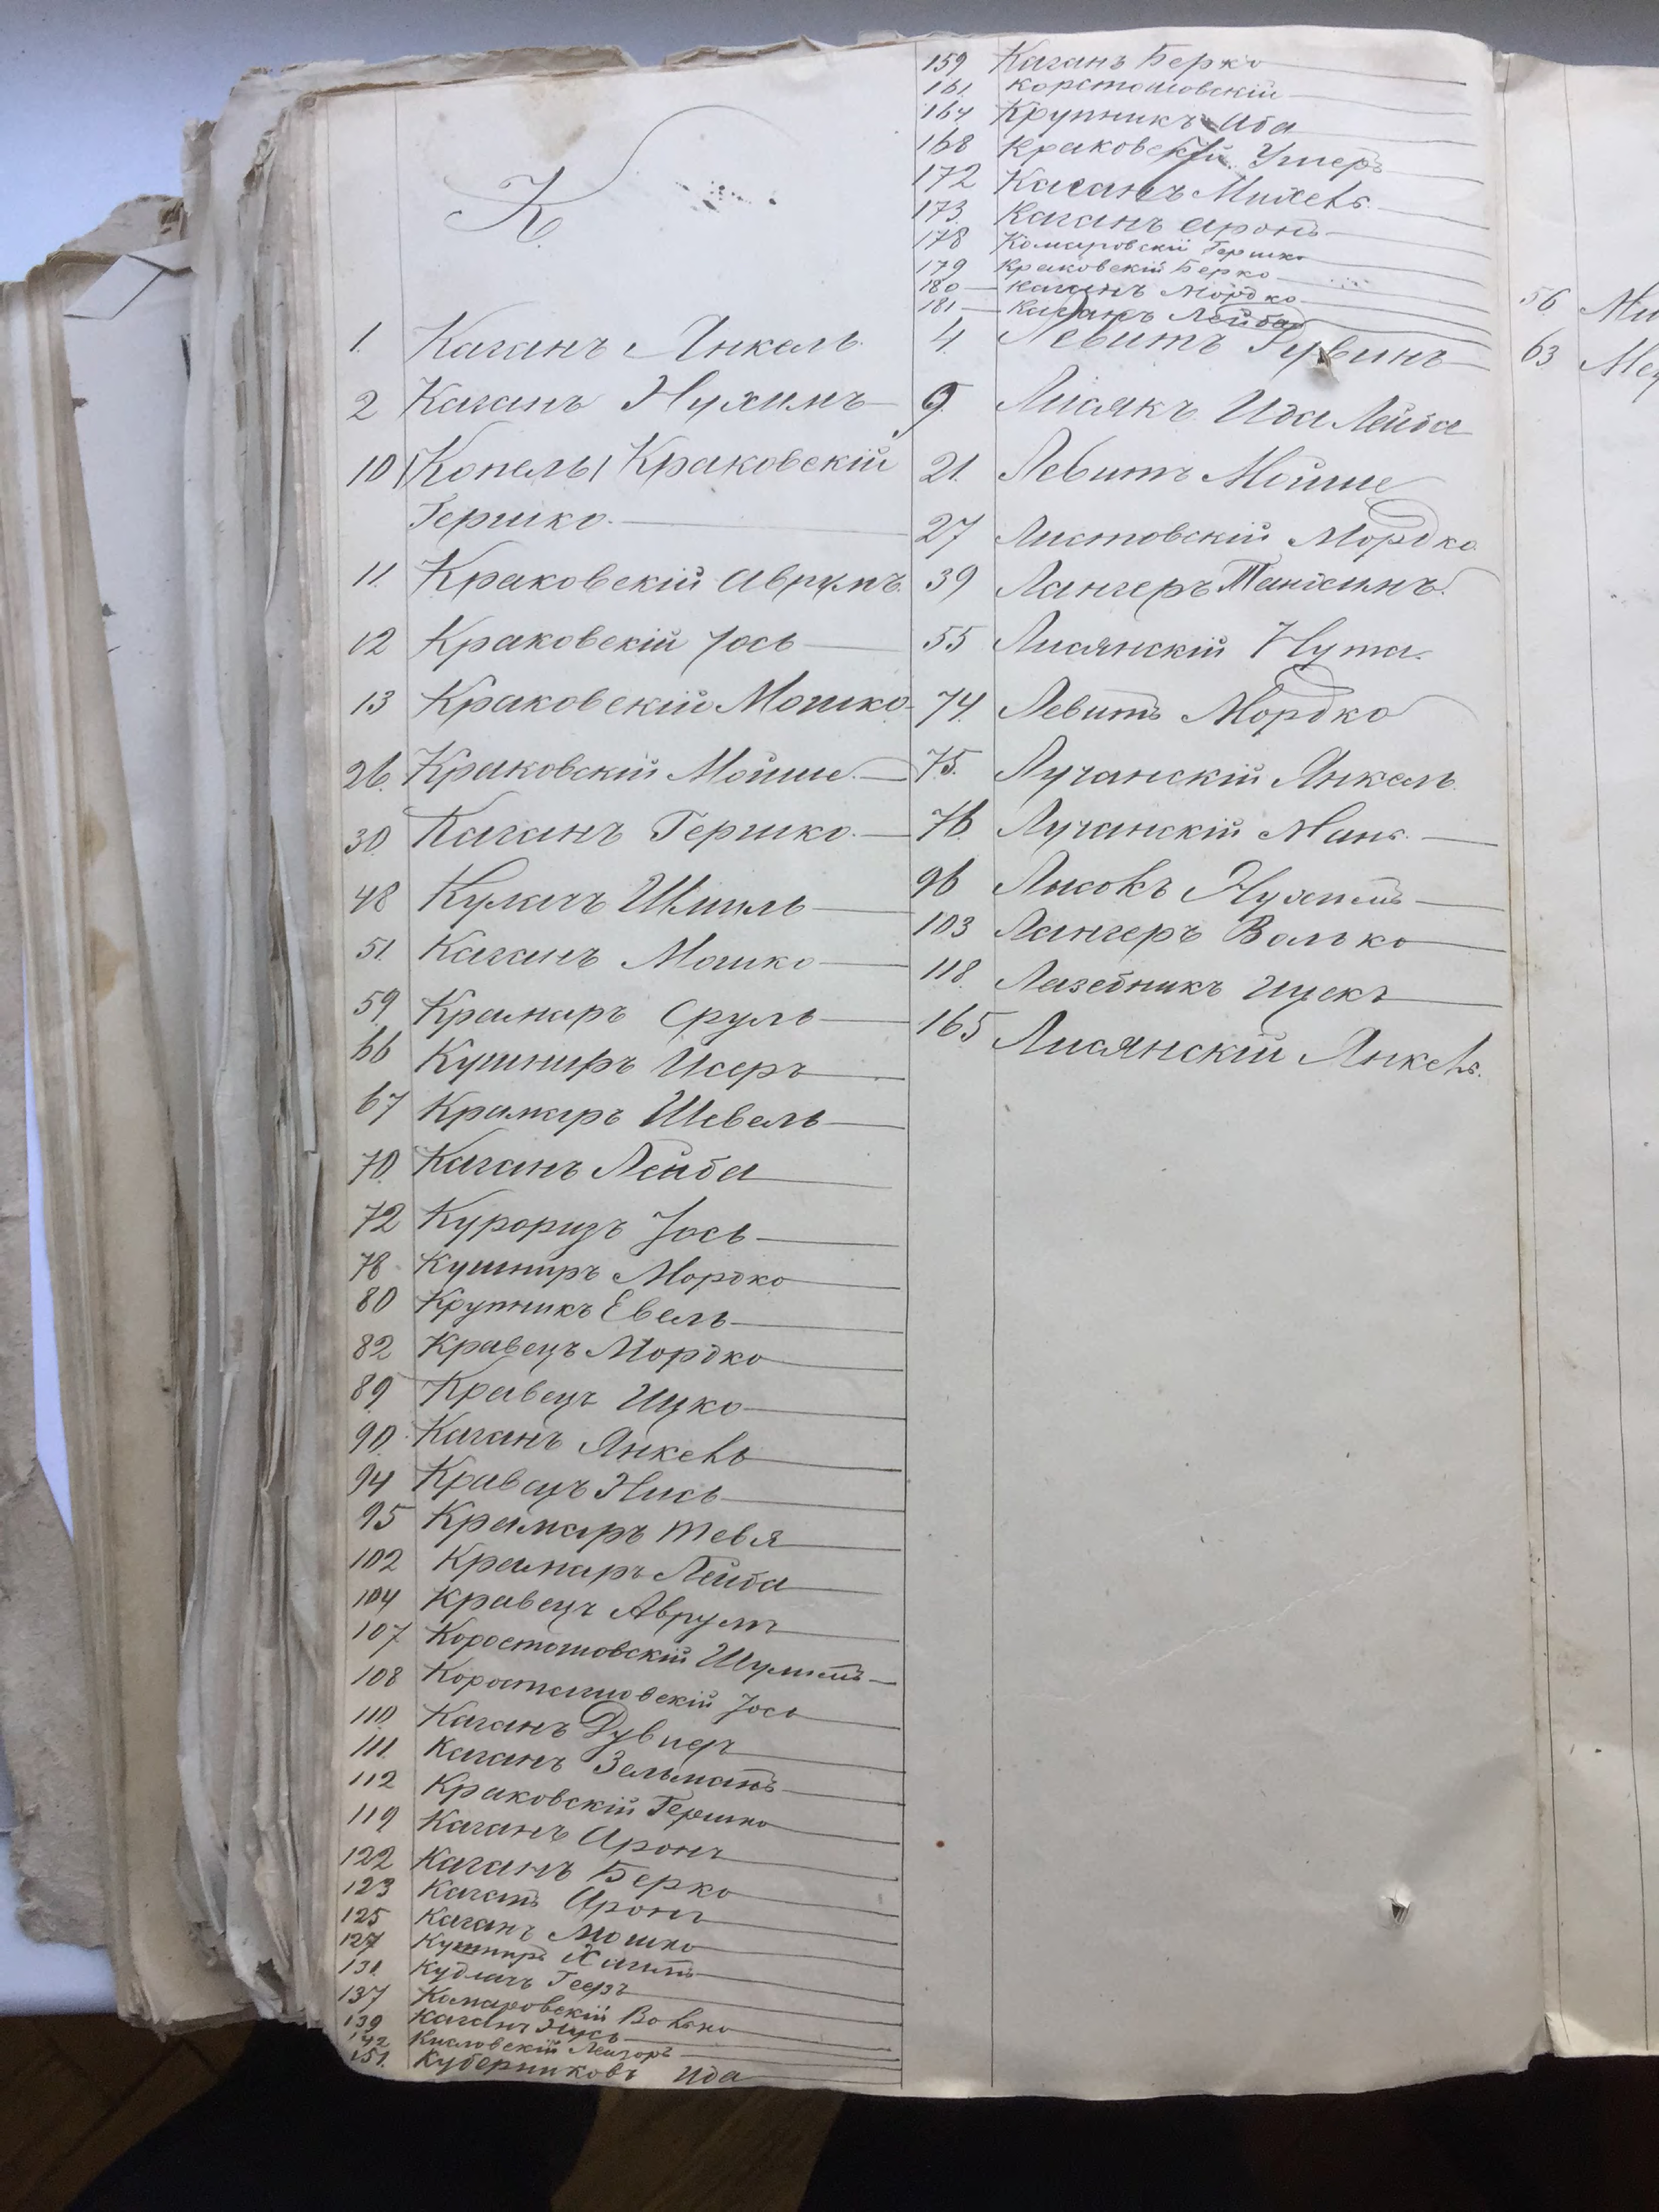 К.
1. Каганъ Янкель.
2 Каганъ Нухимъ
10 (Копель) Краковскій
Гершко.
11. Краковскій Аврумъ.
12 Краковскій Іось
13 Краковскій Мошко
26. Краковскій Мойше.
30. Каганъ Гершко.
48 Кулачъ Шмиль
51. Каганъ Мошко
59. Крамаръ Сруль
66 Кушниръ Исеръ
67 Крамаръ Шевель
70. Каганъ Лейба
72 Куроризъ Іось
78 Кушниръ Мордко
80 Крупникъ Евель
82 Кравецъ Мордко
89. Кравецъ Ицко
90. Каганъ Янкель
94 Кравецъ Нись
95 Крамаръ Тевя
102 Крамаръ Лейба
104 Кравецъ Аврумъ
107. Коростошовскій Шулимъ
108 Коростошовскій Іось
110. Каганъ Дувидъ
111. Каганъ Зельманъ
112 Краковскій Гершко
119 Каганъ Аронъ
122 Каганъ Берко
123 Каганъ Аронъ
125 Каганъ Мошко
127 Кушниръ Хаимъ
131. Кудлачъ
137 Комаровскій Волько
139 Каганъ Нусь
142 Кисловскій Лейзоръ
151. Куберниковъ Ида
159 Каганъ Берко
161. Корстошовскій
164 Крупникъ Аба
168 Краковскій Умеръ
172 Каганъ Михель
173. Каганъ Аронъ
178 Комаровскій Гершко
179 Краковскій Берко
180 Каганъ Мордко
181 Каганъ Лейба
4. Левитъ Рувинъ
9. Лисякъ Ида Лейба
21. Левитъ Мойше
27 Листовскій Мордко
39 Лангеръ Танхимъ.
55 Лисянскій Нута.
74. Левитъ Мордко
75. Лучанскій Янкель
76. Лучанскій Мань.
96 Лисокъ Нухимъ
103 Лангеръ Волько
118. Лазебникъ Ицекъ
165 Лисянскій Янкель.
56 Ми
63